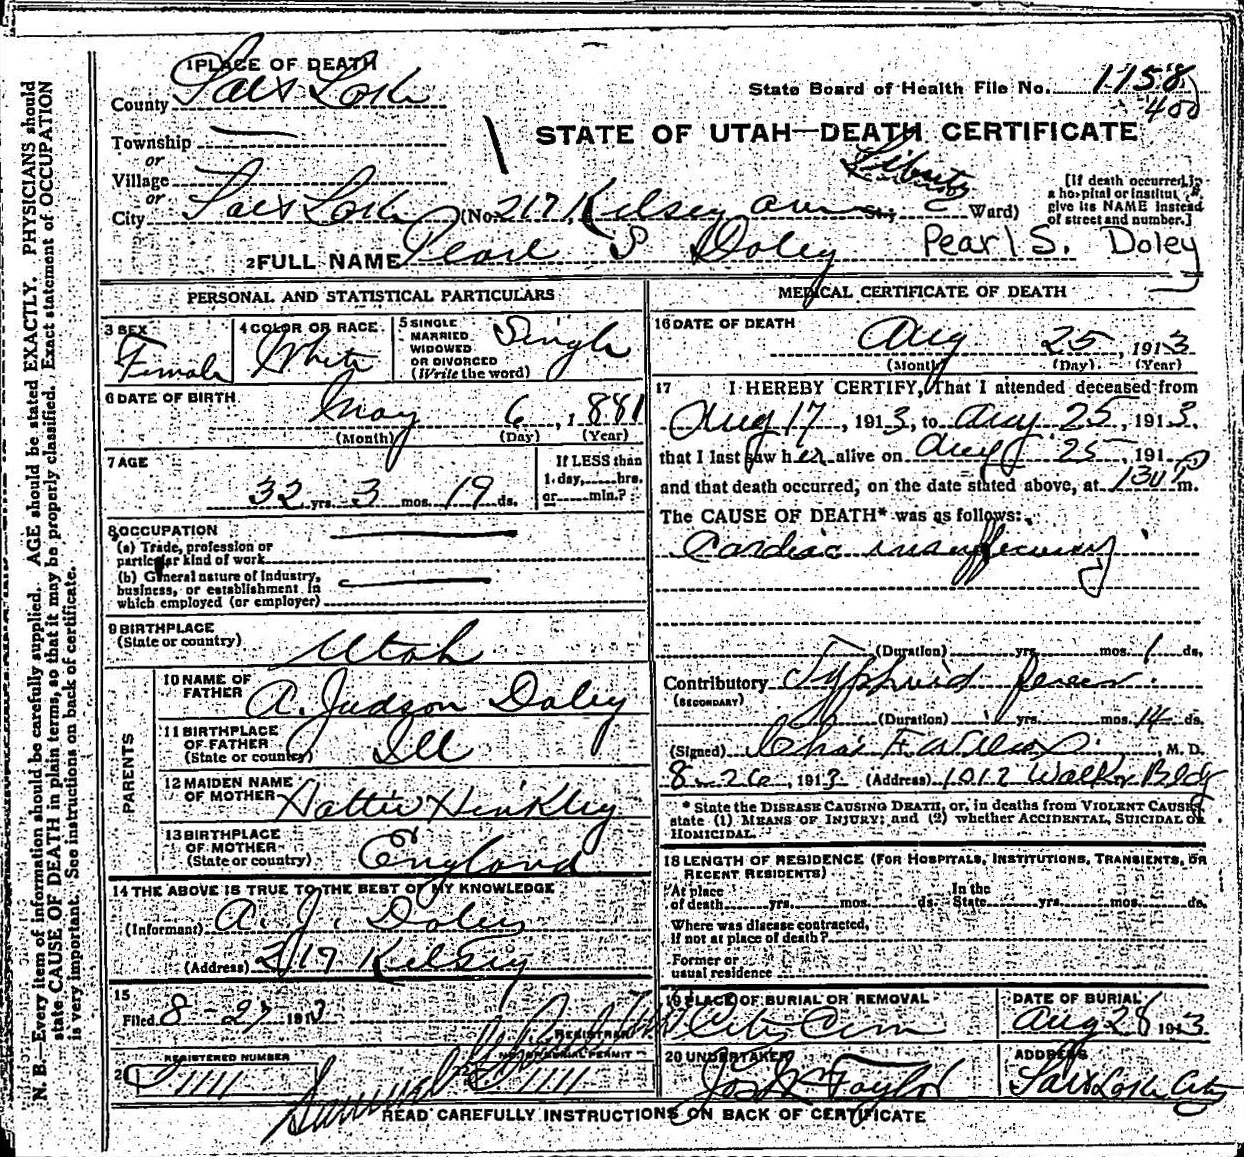 1 PLACE OF DEATH
County Salt Lake
State Board of Health File No. 1158
400
Township
or
Village
or
STATE OF UTAH—DEATH CERTIFICATE
City Salt Lake (No. 217 Kelsey ave St.; Liberty Ward)
[If death occurred in a hospital or institut give its NAME instead of street and number.]
2 FULL NAME Pearl S Doley Pearl S. Doley
PERSONAL AND STATISTICAL PARTICULARS
3 SEX Female
4 COLOR OR RACE White
5 SINGLE MARRIED WIDOWED OR DIVORCED (Write the word) Single
6 DATE OF BIRTH May 6, 1881
(Month) (Day) (Year)
7 AGE 32 yrs. 3 mos. 19 ds.
If LESS than 1 day, hrs. or min.?
8 OCCUPATION
(a) Trade, profession or
particular kind of work
(b) General nature of industry,
business, or establishment in
which employed (or employer)
9 BIRTHPLACE
(State or country) Utah
PARENTS
10 NAME OF FATHER A. Judson Doley
11 BIRTHPLACE OF FATHER (State or country) Ill
12 MAIDEN NAME OF MOTHER Hattie Hinkley
13 BIRTHPLACE OF MOTHER (State or country) England
14 THE ABOVE IS TRUE TO THE BEST OF MY KNOWLEDGE
(Informant) A. J. Doley
(Address) 217 Kelsey
15
Filed 8 27 1913
REGISTRAR
REGISTERED NUMBER
1111
22 NO. OF BURIAL PERMIT
1111
MEDICAL CERTIFICATE OF DEATH
16 DATE OF DEATH
Aug 25, 1913
(Month) (Day) (Year)
17 I HEREBY CERTIFY, That I attended deceased from
Aug 17, 1913, to Aug 25, 1913.
that I last saw her alive on Aug 25, 191
and that death occurred, on the date stated above, at 130 P m.
The CAUSE OF DEATH* was as follows:
Cardiac insufficiency
(Duration) yrs. mos. 1 ds.
Contributory Typhoid fever.
(SECONDARY)
(Duration) yrs. mos. 14 ds.
(Signed) Chas F. Wilcox, M. D.
8-26, 1913 (Address) 1012 Walker Bldg
* State the DISEASE CAUSING DEATH, or, in deaths from VIOLENT CAUSES,
state (1) MEANS OF INJURY; and (2) whether ACCIDENTAL, SUICIDAL OR
HOMICIDAL.
18 LENGTH OF RESIDENCE (FOR HOSPITALS, INSTITUTIONS, TRANSIENTS, OR
RECENT RESIDENTS)
At place of death yrs. mos. ds. In the State yrs. mos. ds.
Where was disease contracted,
if not at place of death?
Former or
usual residence
19 PLACE OF BURIAL OR REMOVAL City Cem
DATE OF BURIAL Aug 28 1913
20 UNDERTAKER Jos Taylor
ADDRESS Salt Lake City
READ CAREFULLY INSTRUCTIONS ON BACK OF CERTIFICATE
N. B.—Every item of information should be carefully supplied. AGE should be stated EXACTLY. PHYSICIANS should
state CAUSE OF DEATH in plain terms, so that it may be properly classified. Exact statement of OCCUPATION
is very important. See instructions on back of certificate.